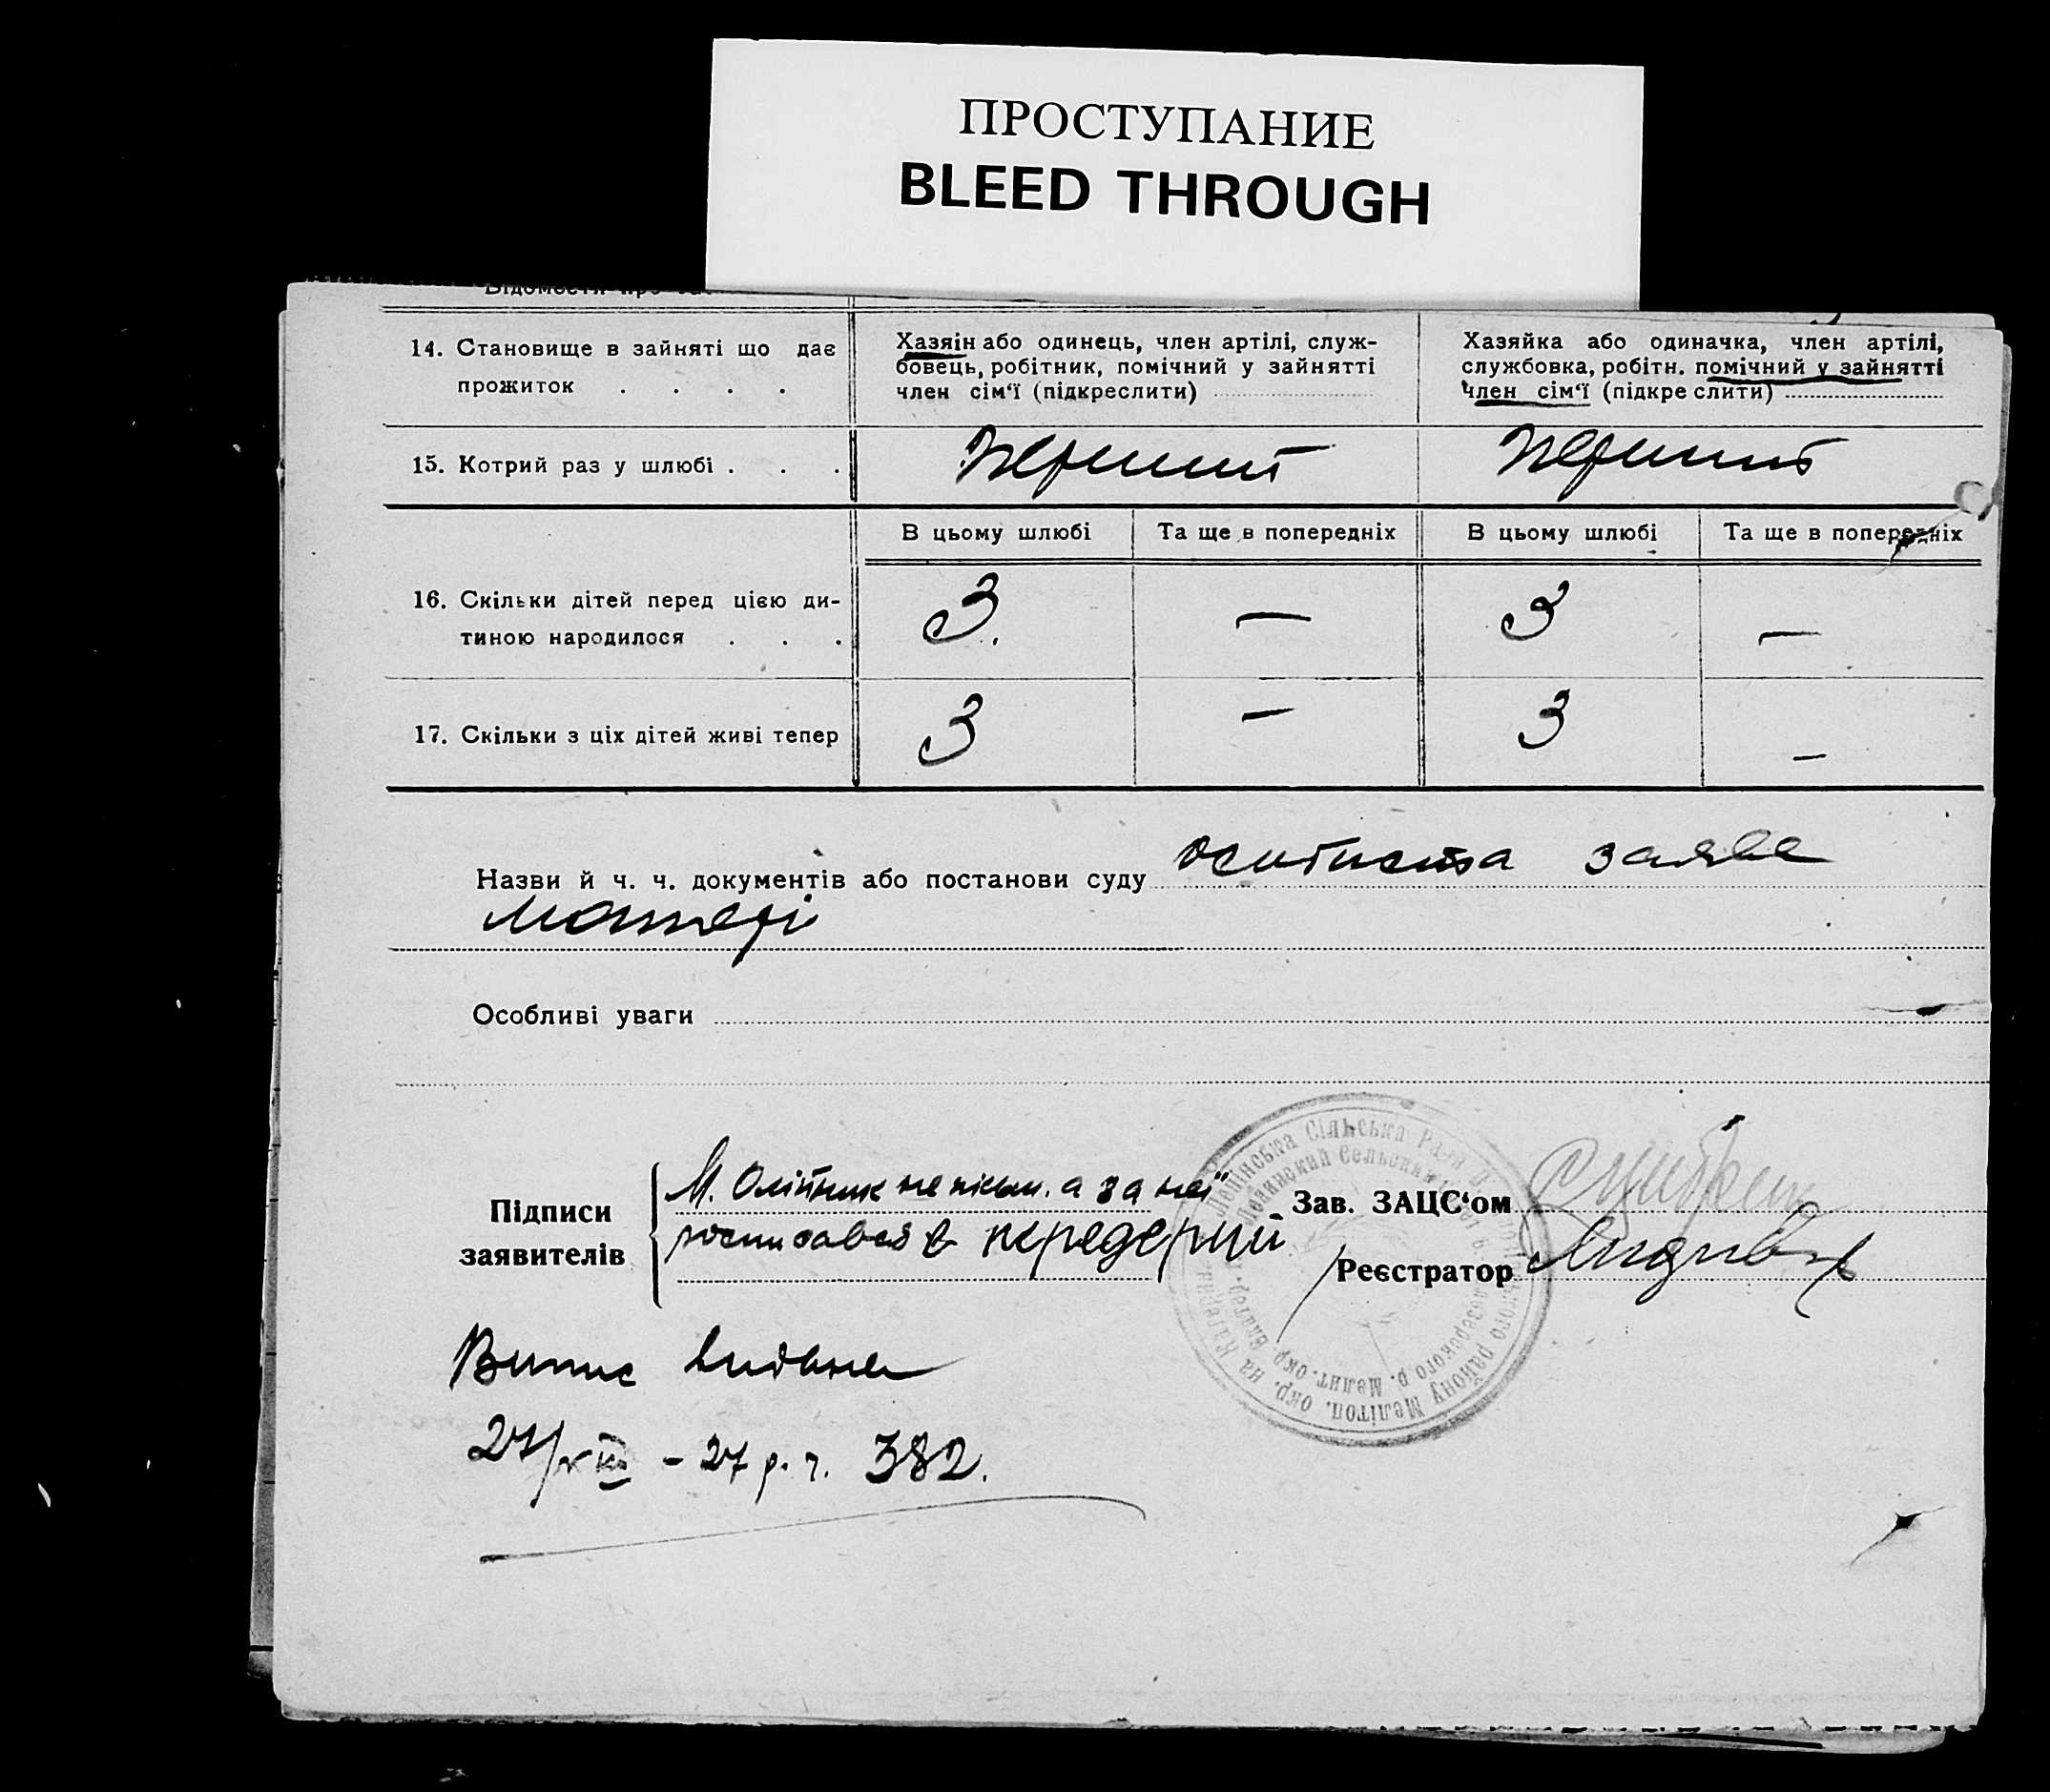 ПРОСТУПАНИЕ
BLEED THROUGH
14. Становище в зайняті що дає
прожиток . . . .
Хазяін або одинець, член артілі, служ-
бовець, робітник, помічний у зайнятті
член сім‘ї (підкреслити)
Хазяйка або одиначка, член артілі,
службовка, робітн. помічний у зайнятті
член сім‘ї (підкреслити)
15. Котрий раз у шлюбі . . .
перший
перший
В цьому шлюбі
Та ще в попередніх
В цьому шлюбі
Та ще в попередніх
16. Скільки дітей перед цією ди-
тиною народилося . . .
3.
—
3
—
17. Скільки з ціх дітей живі тепер
3
—
3
—
Назви й ч. ч. документів або постанови суду особиста заява
матері
Особливі уваги
Підписи
заявителів
М. Олійник не письм. а за неї
росписався в передерій
Зав. ЗАЦС‘ом
Реєстратор
Ленінська Сільська Рада
Мелітоп. окр. на
Випис видана
27/VIII - 27 р. ч. 382.